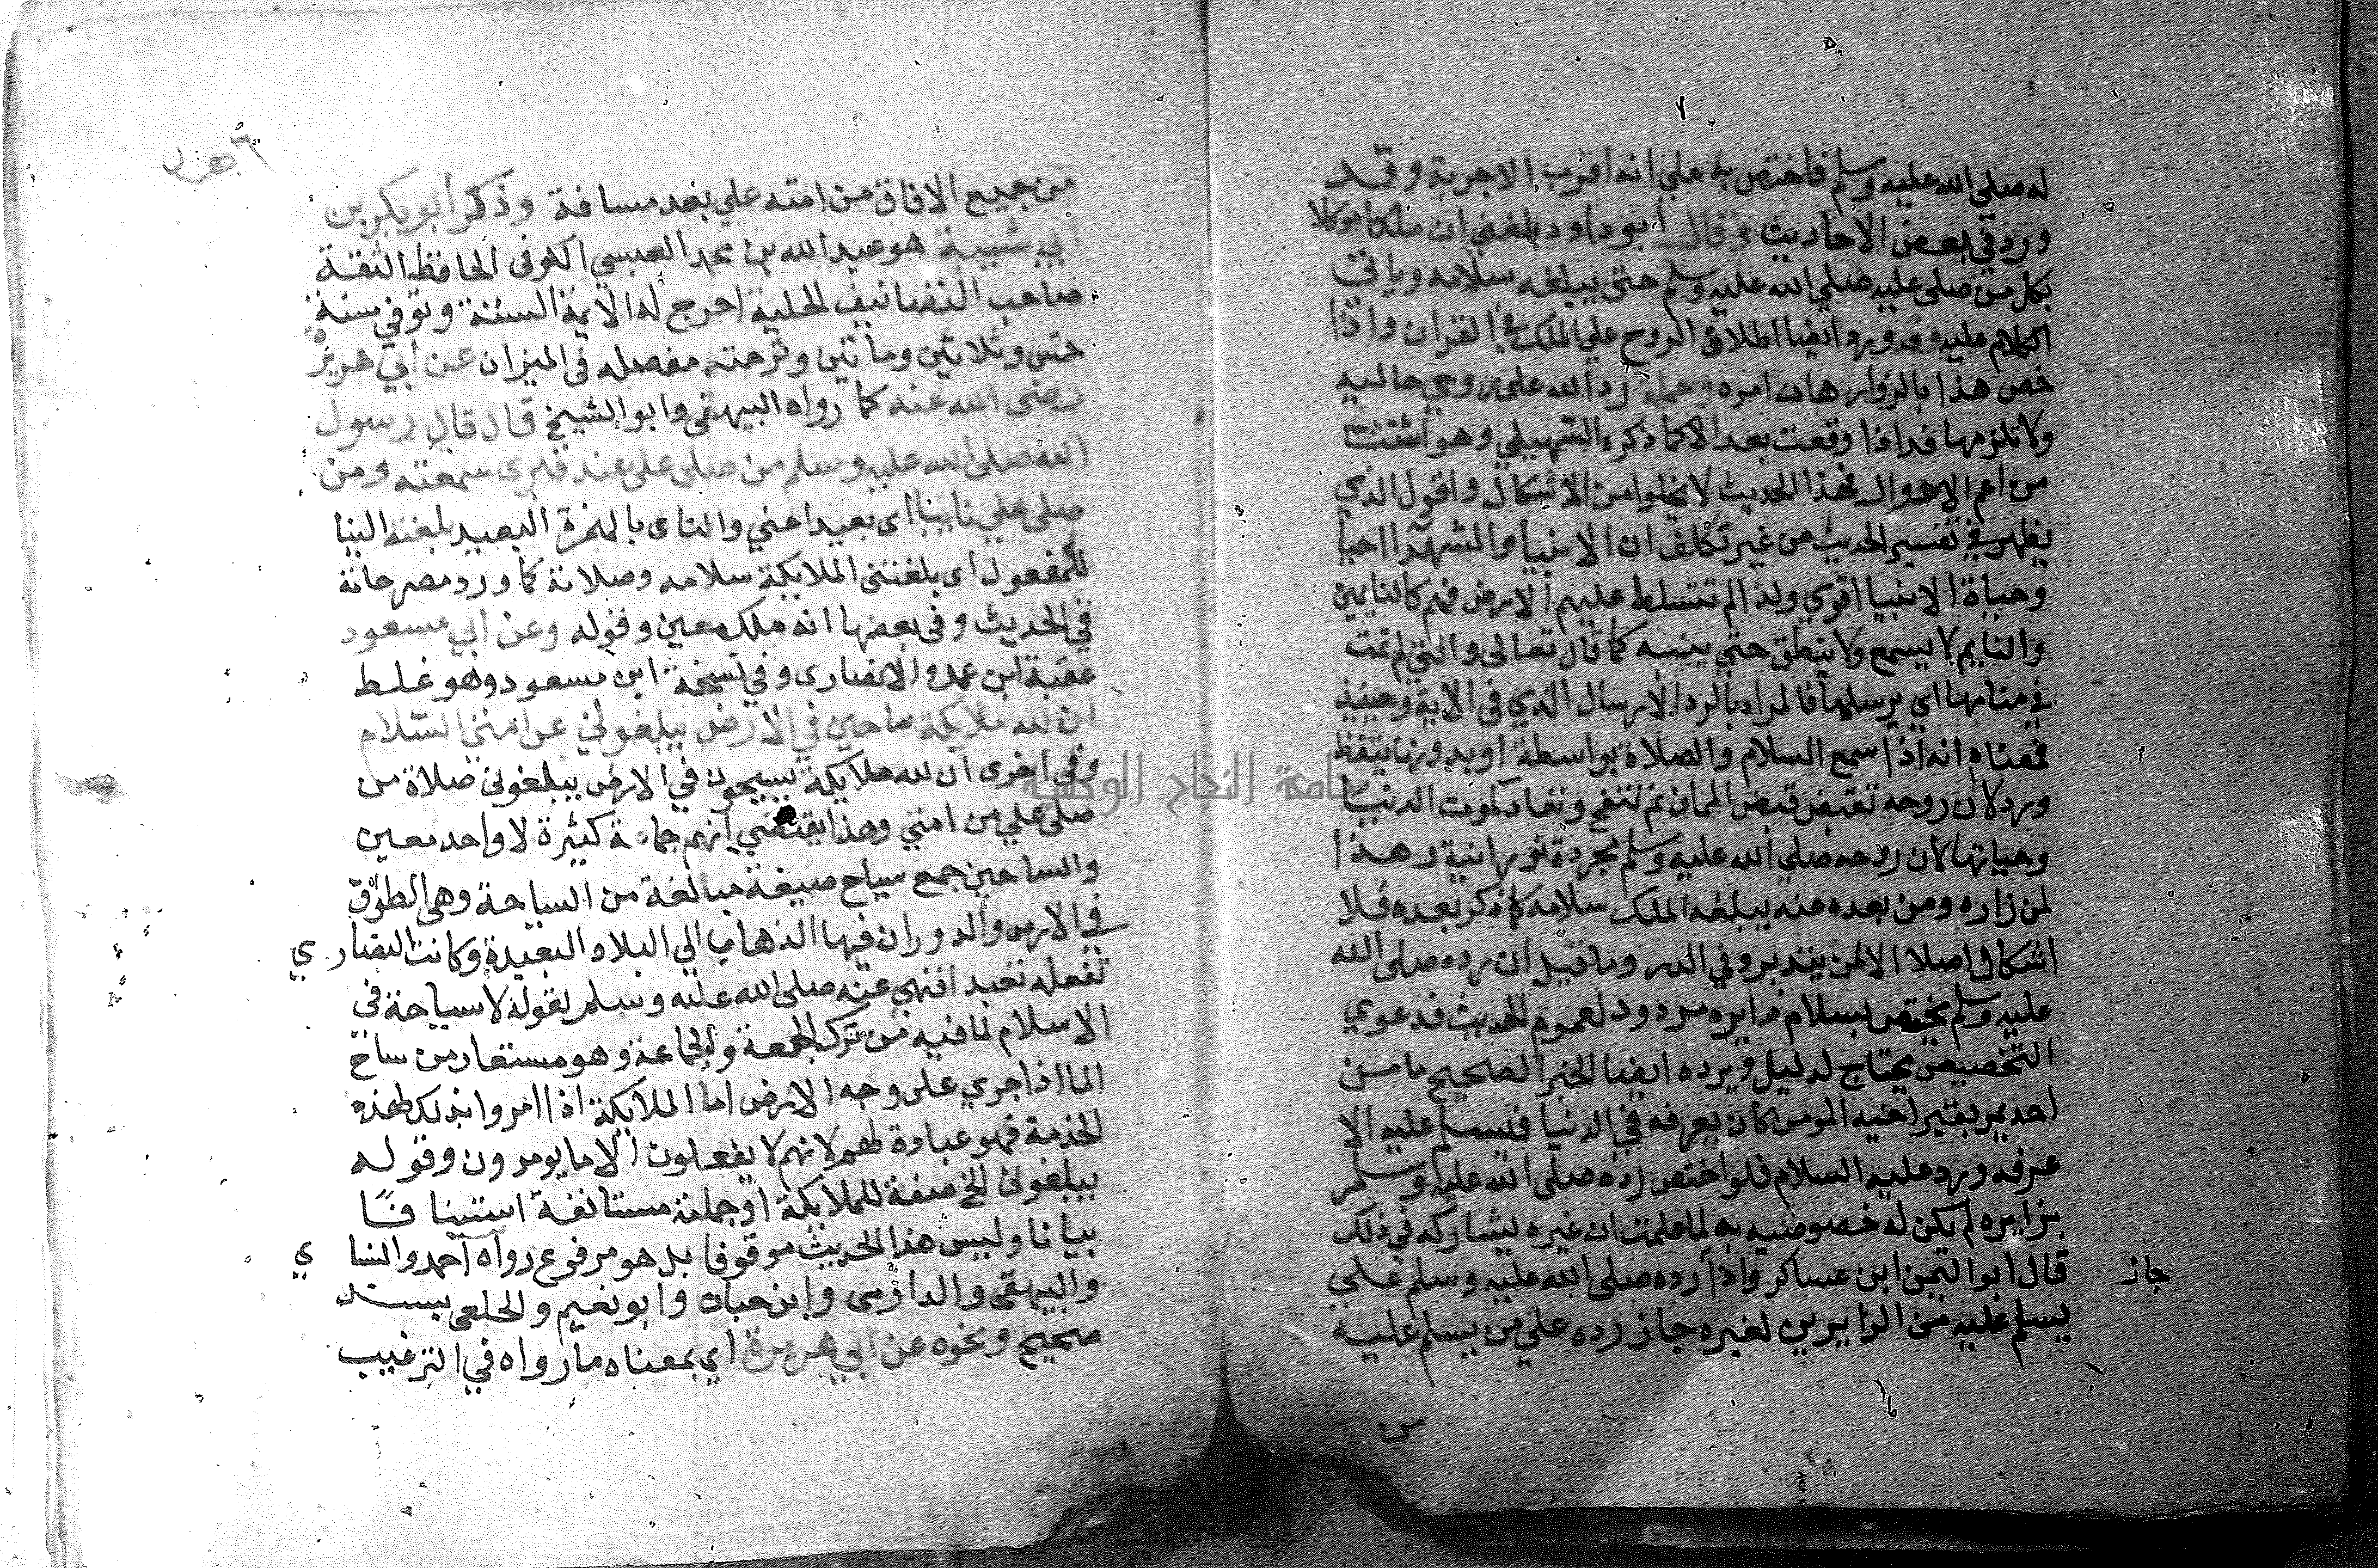 له صلي الله عليه وسلم فاختص به علي انه اقرب الاجوبة وقد
ورد في بعض الاحاديث وقال ابو داود بلغني ان ملكا موكلا
بكل من صلى عليه صلي الله عليه وسلم حتى يبلغه سلامه وياتى
الكلام عليه وقد ورد ايضا اطلاق الروح علي الملك في القران واذا
خص هذا بالزوار هان امره وجملة رد الله على روحي حالية
ولا تلزمها قد اذا وقعت بعد الا كما ذكره السهيلي وهو استثنا
من اعم الاحوال فهذا الحديث لا يخلوا من الاشكال واقول الذي
يظهر في تفسير الحديث من غير تكلف ان الانبيا والشهدا احيا
وحياة الانبيا اقوي ولذا لم تتسلط عليهم الارض فهم كالنايمين
والنايم لا يسمع ولا ينطق حتي ينبه كما قال تعالى والتي لم تمت
في منامها اي يرسلها فالمراد بالرد الارسال الذي فى الاية وحينيذ
فمعناه انه اذا سمع السلام والصلاة بواسطة او بدونها تيقظ
ورد لان روحه تقبض قبض الممات ثم تنفخ وتعاد كموت الدنيا
وحياتها لان روحه صلي الله عليه وسلم مجردة نورانية وهذا
لمن زاره ومن بعده عنه يبلغه الملك سلامه كما ذكر بعده فلا
اشكال اصلا الا لمن يتدبر وفي الدر وما قيل ان رده صلى الله
عليه وسلم مختص بسلام زايره مردود لعموم الحديث فدعوي
التخصيص يحتاج لدليل ويرده ايضا الخبر الصحيح ما من
احد يمر بقبر اخيه المومن كان يعرفه في الدنيا فيسلم عليه الا
عرفه ورد عليه السلام فلو اختص رده صلى الله عليه وسلم
بزايره لم يكن له خصوصية به لما علمت ان غيره يشاركه في ذلك
قال ابو اليمن ابن عساكر واذا رده صلى الله عليه وسلم علي
جاز
يسلم عليه من الزايرين لغيره جاز رده علي من يسلم عليه
من جميع الافاق من امته علي بعد مسافة وذكر ابو بكر بن
ابي شيبة هو عبد الله بن محمد العبسي الكوفى الحافظ الثقة
صاحب التصانيف الجليلة اخرج له الايمة الستة وتوفي سنة
خمس وثلاثين وماتين وترجمته مفصله في الميزان عن ابي هريرة
رضى الله عنه كما رواه البيهقى وابو الشيخ قال قال رسول
الله صلى الله عليه وسلم من صلى على عند قبرى سمعته ومن
صلى علي نايبا اى بعيدا عني والناى بالهمزة البعيد بلغته البنا
للمفعول اى بلغتنى الملايكة سلامه وصلاته كما ورد مصرحا به
في الحديث وفى بعضها انه ملك معين وقوله وعن ابي مسعود
عقبة ابن عمرو الانصارى وفي نسخة ابن مسعود وهو غلط
ان لله ملايكة ساحين في الارض يبلغوني عن امتي السلام
وفي اخرى ان لله ملايكة يسيحون في الارض يبلغونى صلاة من
صلى علي من امتي وهذا يقتضي انهم جماعة كثيرة لا واحد معين
والساحين جمع سياح صيغة مبالغة من السياحة وهى الطوق
في الارض والدوران فيها الذهاب الي البلاد البعيدة وكانت النصاري
تفعله تعبد افنهي عنه صلى الله عليه وسلم بقوله لا سياحة فى
الاسلام لما فيه من ترك الجمعة والجماعة وهو مستعار من ساح
الما اذا جري على وجه الارض اما الملايكة اذا امروا بذلك لهذه
الخدمة فهو عبادة لهم لانهم لا يفعلون الا ما يومرون وقوله
يبلغونى الخ صفة للملايكة او جملة مستانفة استينافا
بيانا وليس هذا الحديث موقوفا بل هو مرفوع رواه احمد والنساي
والبيهقى والدارمى وابن حبان وابو نعيم والخلعى بسند
صحيح ونحوه عن ابي هريرة اي بمعناه ما رواه في الترغيب
جامعة النجاح الوطنية